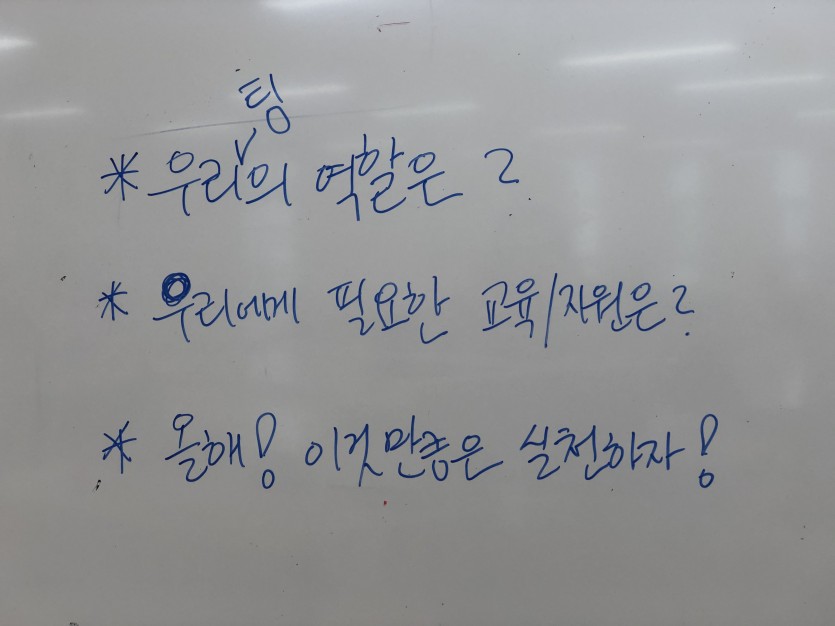 * 우리팀의 역할은?
* 우리에게 필요한 교육/자원은?
* 올해! 이것만큼은 실천하자!